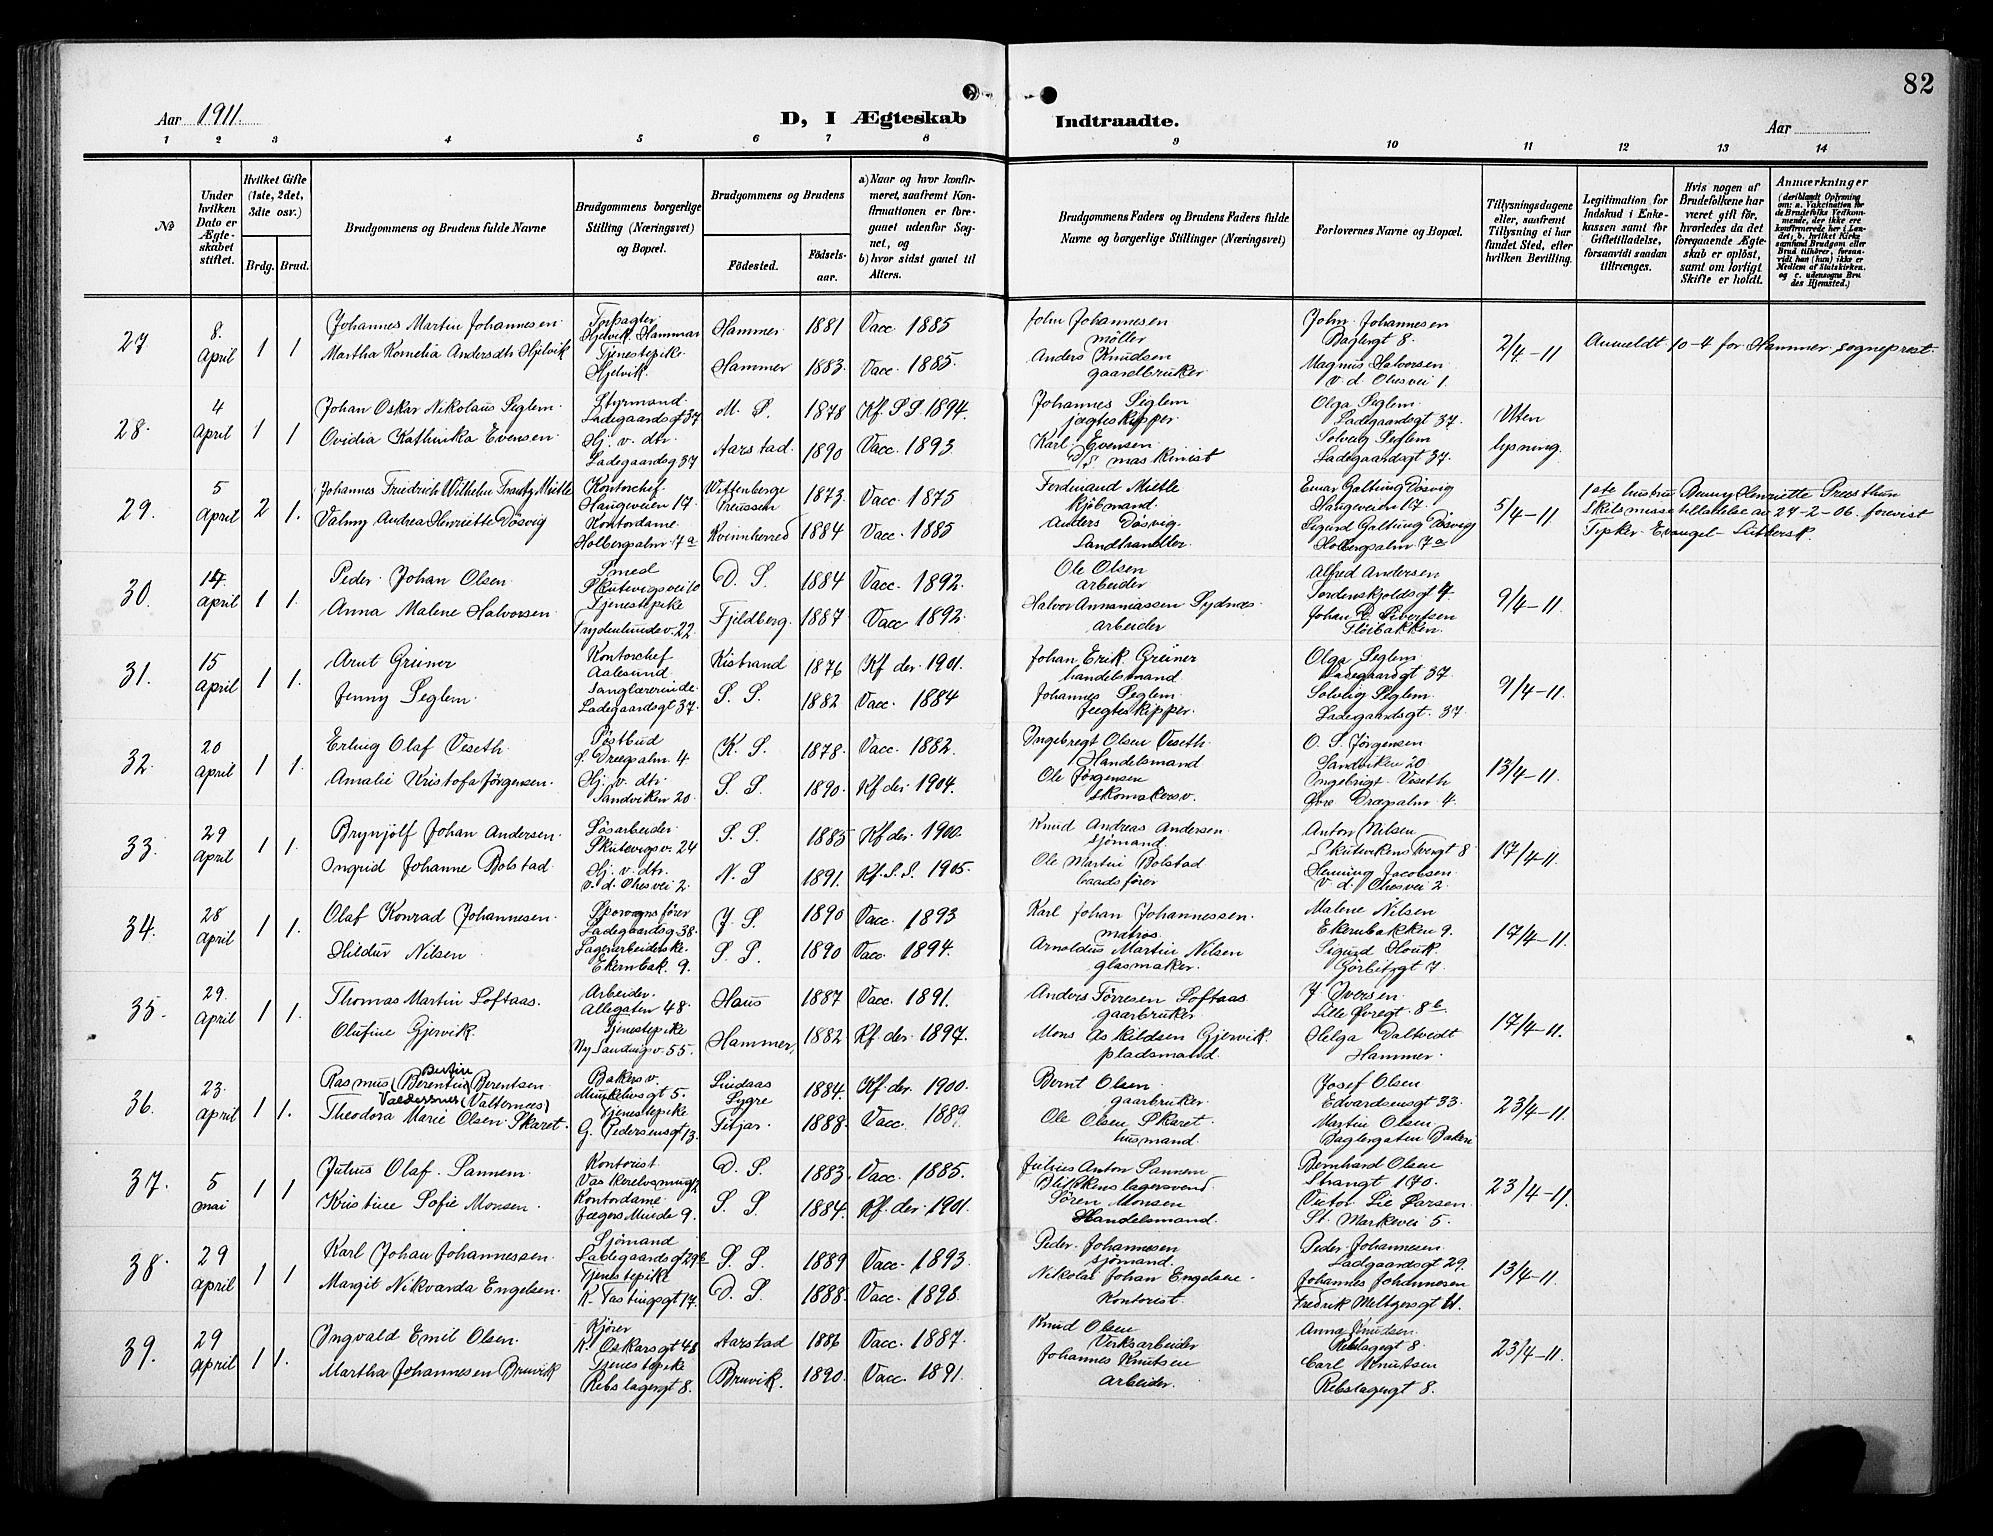 82
Aar 1911.
D, I Ægteskab Indtraadte.
Aar
1 2 3 4 5 6 7 8 9 10 11 12 13 14
No
Under hvilken Dato er Ægteskabet stiftet.
Hvilket Gifte (1ste, 2det, 3die osv.)
Brdg. Brud.
Brudgommens og Brudens fulde Navne
Brudgommens borgerlige Stilling (Næringsvei) og Bopæl.
Brudgommens og Brudens
Fødested.
Fødselsaar.
a) Naar og hvor konfirmeret, saafremt Konfirmationen er foregaaet udenfor Sognet, og
b) hvor sidst gaaet til Alters.
Brudgommens Faders og Brudens Faders fulde Navne og borgerlige Stillinger (Næringsvei)
Forlovernes Navne og Bopæl.
Tillysningsdagene eller, saafremt Tillysning ei har fundet Sted, efter hvilken Bevilling.
Legitimation for Indskud i Enkekassen samt for Giftetilladelse, forsaavidt saadan tiltrænges.
Hvis nogen af Brudefolkene har været gift før, hvorledes da det foregaaende Ægteskab er opløst, samt om lovligt Skifte er holdt.
Anmærkninger
27 8. April 1 1 Johannes Martin Johannesen Forpagter Hjelvik. Hammar Hammer 1881 Vacc 1885 John Johannesen møller John Johannesen Baglergt 8. 2/4-11 Anmeldt 10-4 for Hammer sogneprest.
Martha Kornelia Andersdtr Hjelvik Tjenestepike Hjelvik. Hammer 1883. Vacc. 1885. Anders Knudsen gaardbruker Magnus Halvorsen v. d. Ohesvei 1.
28. 4 April 1 1 Johan Oskar Nikolaus Seglem. Styrmand. Ladegaardsgt 37 M. S. 1878 Kf. S S 1894. Johannes Seglem jægteskipper. Olga Seglem. Ladegaardsgt 37. Uten lysning.
Ovidia Kathinka Evensen. Hj. v. dtr. Ladegaardsg 37 Aarstad. 1890 Vacc. 1893. Karl Evensen. D/S maskinist Solveig Seglem Ladegaardsgt 37.
29. 5 April 2 1. Johannes Friedrich Wilhelm Miethe Kontorchef Haugeveien 17 Wittenberge Preussen 1873. Vacc. 1875 Ferdinand Miethe kjøbmand. Einar Galtung Døsvig Haugeveien 17. 5/4-11 1ste hustru Benny Henriette Presthun Skilsmissetilladelse av 27-2-06. forevist
Valmy Andrea Henriette Døsvig Kontordame Holbergsalm. 7a Kvinnherred 1884 Vacc. 1885 Anders Døsvig. Landhandler. Sigurd Galtung Døsvig Holbergsalm. 7a Evangel-Luthersk.
30. 17 April 1 1. Peder Johan Olsen Smed Skutevigsvei 10 D. S. 1884 Vacc. 1892. Ole Olsen arbeider Alfred Andersen Tordenskjoldsgt 9. 9/4-11.
Anna Malene Halvorsen. Tjenestepike 22 Fjeldberg. 1887 Vacc 1892. Halvor Annaniassen Sydnæs. arbeider Johan Sivertsen Fløibakken.
31. 15 April 1 1. Arnt Greiner Kontorchef Aalesund Kistrand 1876 Kf der. 1901. Johan Erik Greiner handelsmand Olga Seglem. Ladegaardsgt 37. 9/4-11.
Jenny Seglem. Sanglærerinde. Ladegaardsgt 37. S. S. 1882 Vacc. 1884 Johannes Seglem. Jægteskipper. Solveig Seglem. Ladegaardsgt. 37.
32. 20 April 1 1. Erling Olaf Veseth. Postbud ø. Dregsalm. 4 K. S. 1878. Vacc. 1882. Ingebregt Olsen Veseth Handelsmand O. S. Jørgensen Sandviken 20 13/4-11.
Amalie Kristofa Jørgensen. Hj. v. dtr. Sandviken 20. S. S. 1890. Kf der. 1904. Ole Jørgensen skomakersv. Ingebrigt Veseth Øvre Dregsalm 4.
33. 29 April 1 1. Brynjolf Johan Andersen. Løsarbeider. Skutevigsv. 24 S. S. 1885 Kf der. 1900. Knud Andreas Andersen. sjømand. Anton Nilsen 8 17/4-11.
Ingrid Johanne Bolstad. Hj. v. dtr. v. d. Ohesvei 2. N. S 1891. Kf. S. S. 1905. Ole Martin Bolstad baadsfører Henning Jacobsen v. d. Ohesvei 2.
34. 28 April 1 1. Olaf Konrad Johannesen. Sporvognsfører Ladegaardsg 38. J. S. 1890 Vacc. 1893 Karl Johan Johannessen. matros. Malene Nilsen Ekernbakken 9. 17/4-11.
Hildur Nilsen Lagerarbeiderske. Ekernbak. 9. S. S. 1890 Vacc. 1894. Arnoldus Martin Nilsen glasmaker. Sigurd Houk. Gørbitzgt 7.
35. 29. April 1 1. Thomas Martin Loftaas. Arbeider. Allegaten 48. Haus 1887 Vacc. 1891. Anders Tørresen Loftaas gaarbruker. J Iversen. Lille Øvregt. 8b. 17/4-11.
Olufine Gjervik. Tjenestepike Ny Sandvigsv. 55. Hammer, 1882 Kf der. 1897. Mons Askildsen Gjervik. pladsmand. Helga Daltvedt Hammer.
36. 23. April 1 1. Rasmus (Berentin Bertin Berentsen Valdersnes (Valternees) Bakersv. Munkelivsgt 5. Lindaas Lygre 1884. Kf der. 1900. Bernt Olsen. gaarbruker. Josef Olsen Edvardsensgt 33. 23/4-11.
Theodora Marie Olsen Skaret. Tjenestepike G. Pedersensgt 13. Fitjar. 1888. Vacc. 1889. Ole Olsen Skaret. husmand. Martin Olsen Baglergaten Baken
37. 5 mai 1 1 Julius Olaf Sannem. Kontorist. D. S. 1883. Vacc. 1885. Julius Anton Sannem Blikkens lagersvend. Bernhard Olsen Strangt 170. 23/4-11.
Kristine Sofie Monsen. Kontordame. Jægers Minde 9. S. S. 1884. Kf. der. 1901. Søren Monsen Handelsmand. Victor Lie Larsen. St. Markevei 5.
38. 29 April 1 1 Karl Johan Johannessen. Sjømand Ladegaardsgt 29 S. S. 1889 Vacc. 1893. Peder Johannesen sjømand. Peder Johannesen. Ladgaardsgt 29. 13/4-11.
Margit Nikvarda Engelsen. Tjenestepike K. Tastingsgt 17. D. S. 1888. Vacc. 1898. Nikolai Johan Engelsen. Kontorist. Johannes Johannesen Fredrik Meltzersgt 11.
39. 29 April 1 1. Ingvald Emil Olsen. Kjører K. Oskarsgt 48 Aarstad 1886 Vacc. 1887. Knud Olsen Verksarbeider Anna Knudsen. Rebslagergt 8. 23/4-11.
Martha Johannesen Bruvik Tjenestepike Rebslagergt 8. Bruvik. 1890. Vacc. 1891. Johannes Knutsen arbeider. Carl Knutsen Rebslagergt 8.